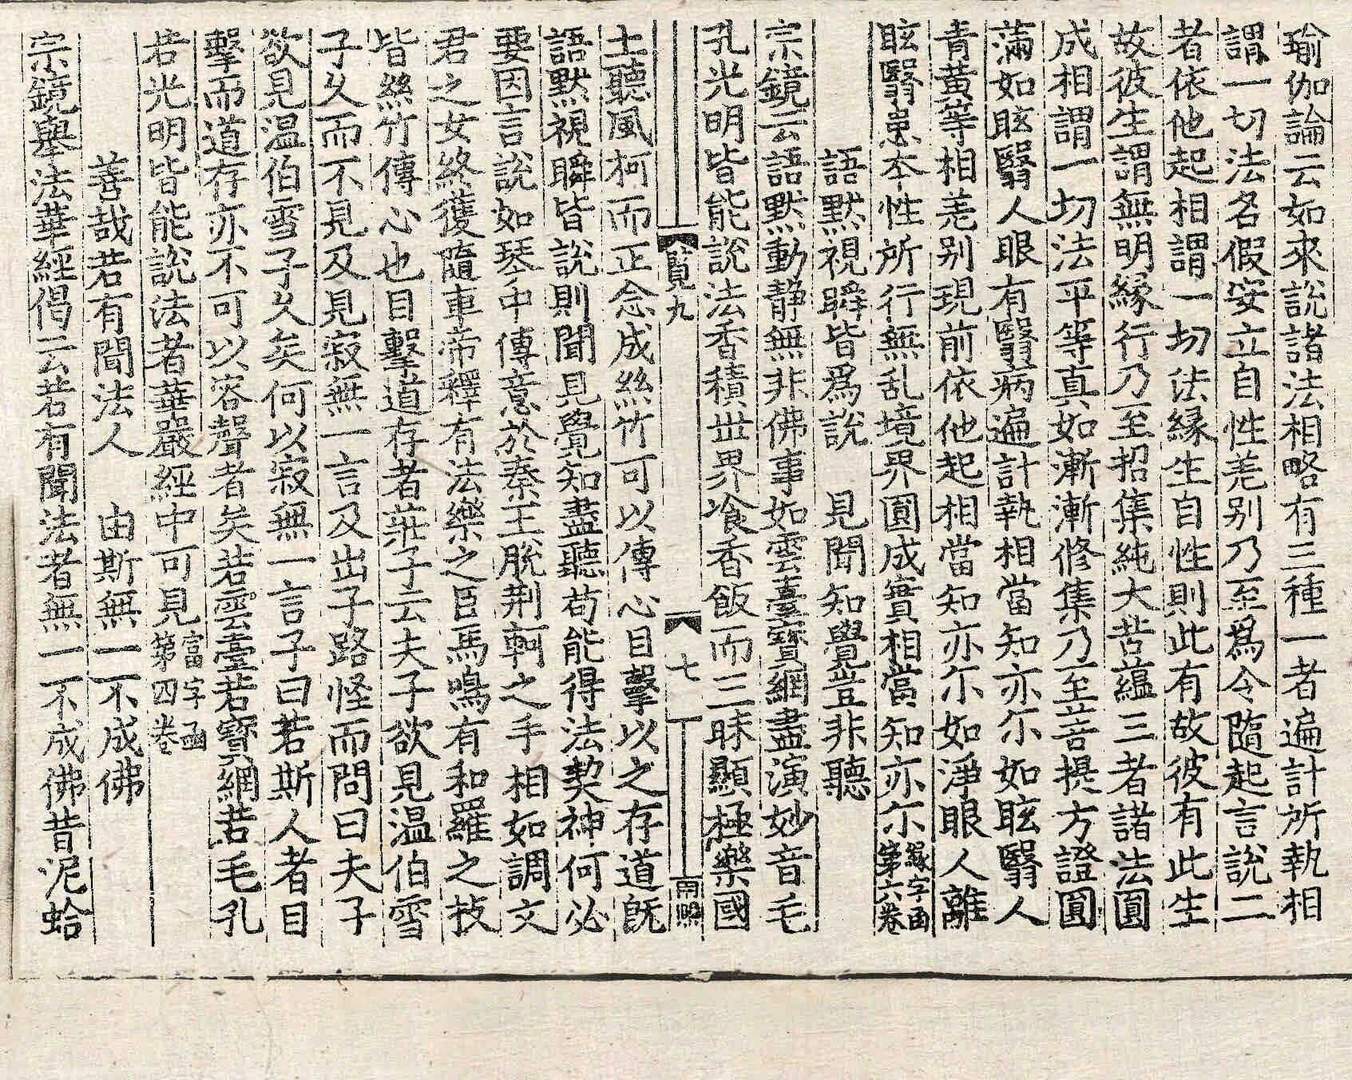 瑜伽論云如來說諸法相略有三種一者遍計所執相
謂一切法名假安立自性差别乃至爲令隨起言說二
者依他起相謂一切法縁生自性則此有故彼有此生
故彼生謂無明縁行乃至招集純大苦蘊三者諸法圓
成相謂一切法平等真如漸漸修集乃至菩提方證圓
滿如眩翳人眼有翳病遍計執相當知亦尓如眩翳人
青黄等相差别現前依他起相當知亦尓如淨眼人離
眩翳患本性所行無乱境界圓成實相當知亦尓
字函第六卷
語默視瞬皆爲說　見聞知覺豈非聽
宗鏡云語默動静無非佛事如雲臺寳網盡演妙音毛
孔光明皆能說法香積世界飡香飯而三昧顯極樂國
覧九
七
土聽風柯而正念成絲竹可以傳心目擊以之存道旣
語默視瞬皆說則聞見覺知盡聽苟能得法契神何必
要因言說如琴中傳意於秦王脫荆軻之手相如調文
君之女終獲隨車帝釋有法樂之臣馬鳴有和羅之技
皆絲竹傳心也目擊道存者莊子云夫子欲見温伯雪
子久而不見及見寂無一言及出子路怪而問曰夫子
欲見温伯雪子久矣何以寂無一言子曰若斯人者目
擊而道存亦不可以容聲者矣若雲臺若寳網若毛孔
若光明皆能說法者華嚴經中可見
富字函第四卷
善哉若有聞法人　由斯無一不成佛
宗鏡舉法華經偈云若有聞法者無一不成佛昔泥蛤